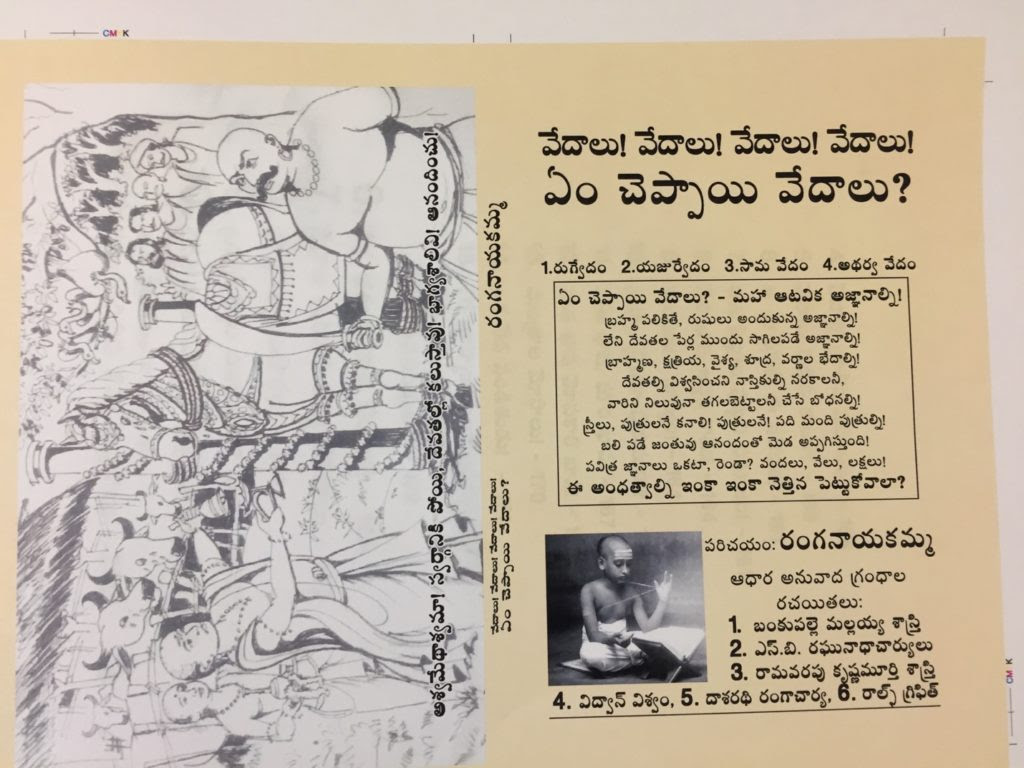 CMYK
వేదాలు! వేదాలు! వేదాలు! వేదాలు!
ఏం చెప్పాయి వేదాలు?
1.రుగ్వేదం 2.యజుర్వేదం 3.సామ వేదం 4.అథర్వ వేదం
ఏం చెప్పాయి వేదాలు? - మహా ఆటవిక అజ్ఞానాల్ని!
బ్రహ్మ పలికితే, రుషులు అందుకున్న అజ్ఞానాల్ని!
లేని దేవతల పేర్ల ముందు సాగిలపడే అజ్ఞానాల్ని!
బ్రాహ్మణ, క్షత్రియ, వైశ్య, శూద్ర, వర్ణాల భేదాల్ని!
దేవతల్ని విశ్వసించని నాస్తికుల్ని నరకాలనీ,
వారిని నిలువునా తగలబెట్టాలనీ చేసే బోధనల్ని!
స్త్రీలు, పుత్రులనే కనాలి! పుత్రులనే! పది మంది పుత్రుల్ని!
బలి పడే జంతువు ఆనందంతో మెడ అప్పగిస్తుంది!
పవిత్ర జ్ఞానాలు ఒకటా, రెండా? వందలు, వేలు, లక్షలు!
ఈ అంధత్వాల్ని ఇంకా ఇంకా నెత్తిన పెట్టుకోవాలా?
పరిచయం: రంగనాయకమ్మ
ఆధార అనువాద గ్రంధాల
రచయితలు:
1. బంకుపల్లె మల్లయ్య శాస్త్రి
2. ఎస్.బి. రఘునాధాచార్యులు
3. రామవరపు కృష్ణమూర్తి శాస్త్రి
4. విద్వాన్ విశ్వం, 5. దాశరథి రంగాచార్య, 6. రాల్ఫ్ గ్రిఫిత్
వేదాలు! వేదాలు! వేదాలు! వేదాలు!
ఏం చెప్పాయి వేదాలు?
రంగనాయకమ్మ
అశ్వమేధాశ్వమా! స్వర్గానికి పోయి, దేవతల్లో కలుస్తావు! భాగ్యశాలివి! ఆనందించు!
CM